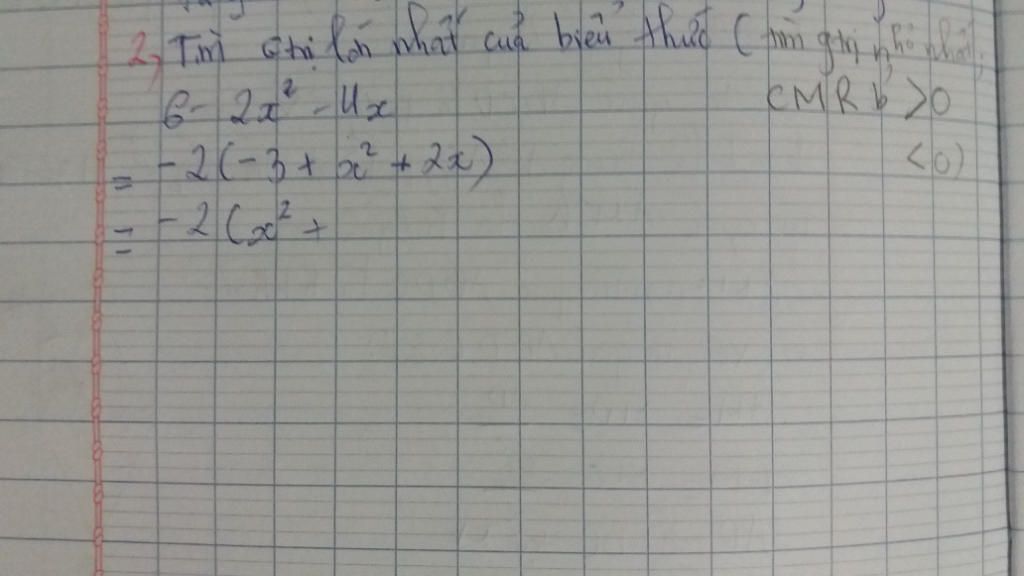 2, Tìm gtrị lớn nhất của biểu thức ( tìm gtrị nhỏ nhất,
6 - 2x² - 4x CMR b >0
= -2(-3 + x² + 2x) <0)
= -2(x² +